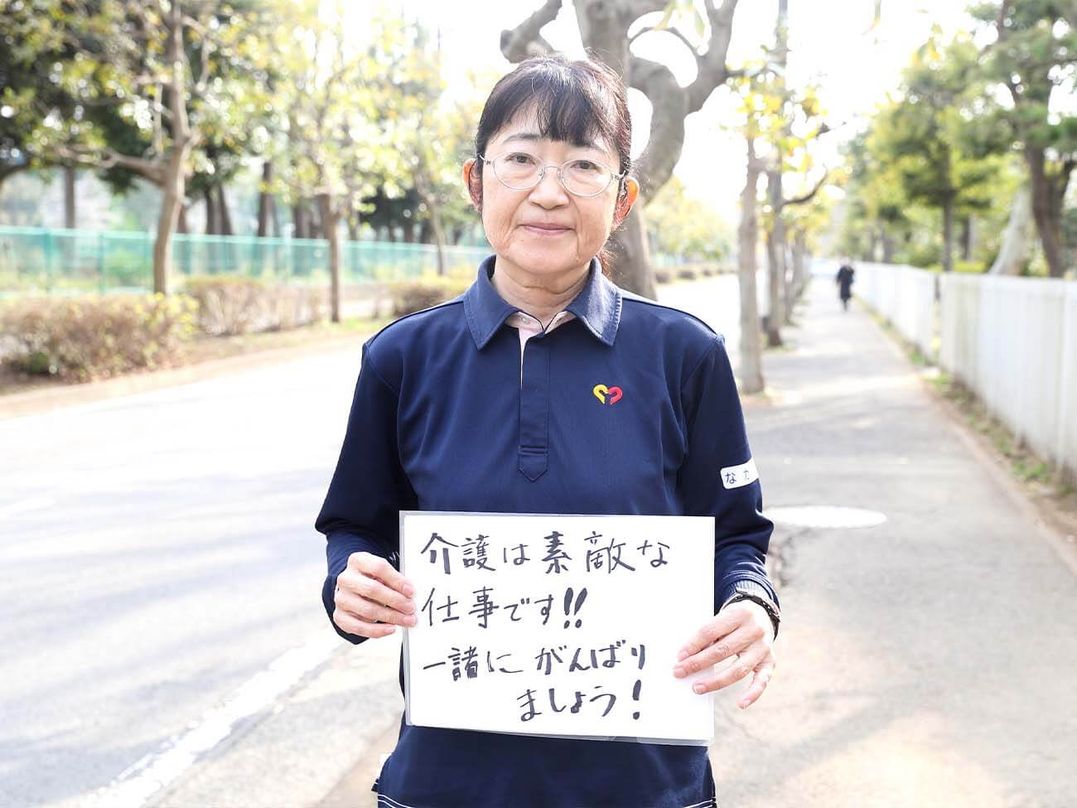 介護は素敵な
仕事です!!
一諸にがんばり
ましょう!